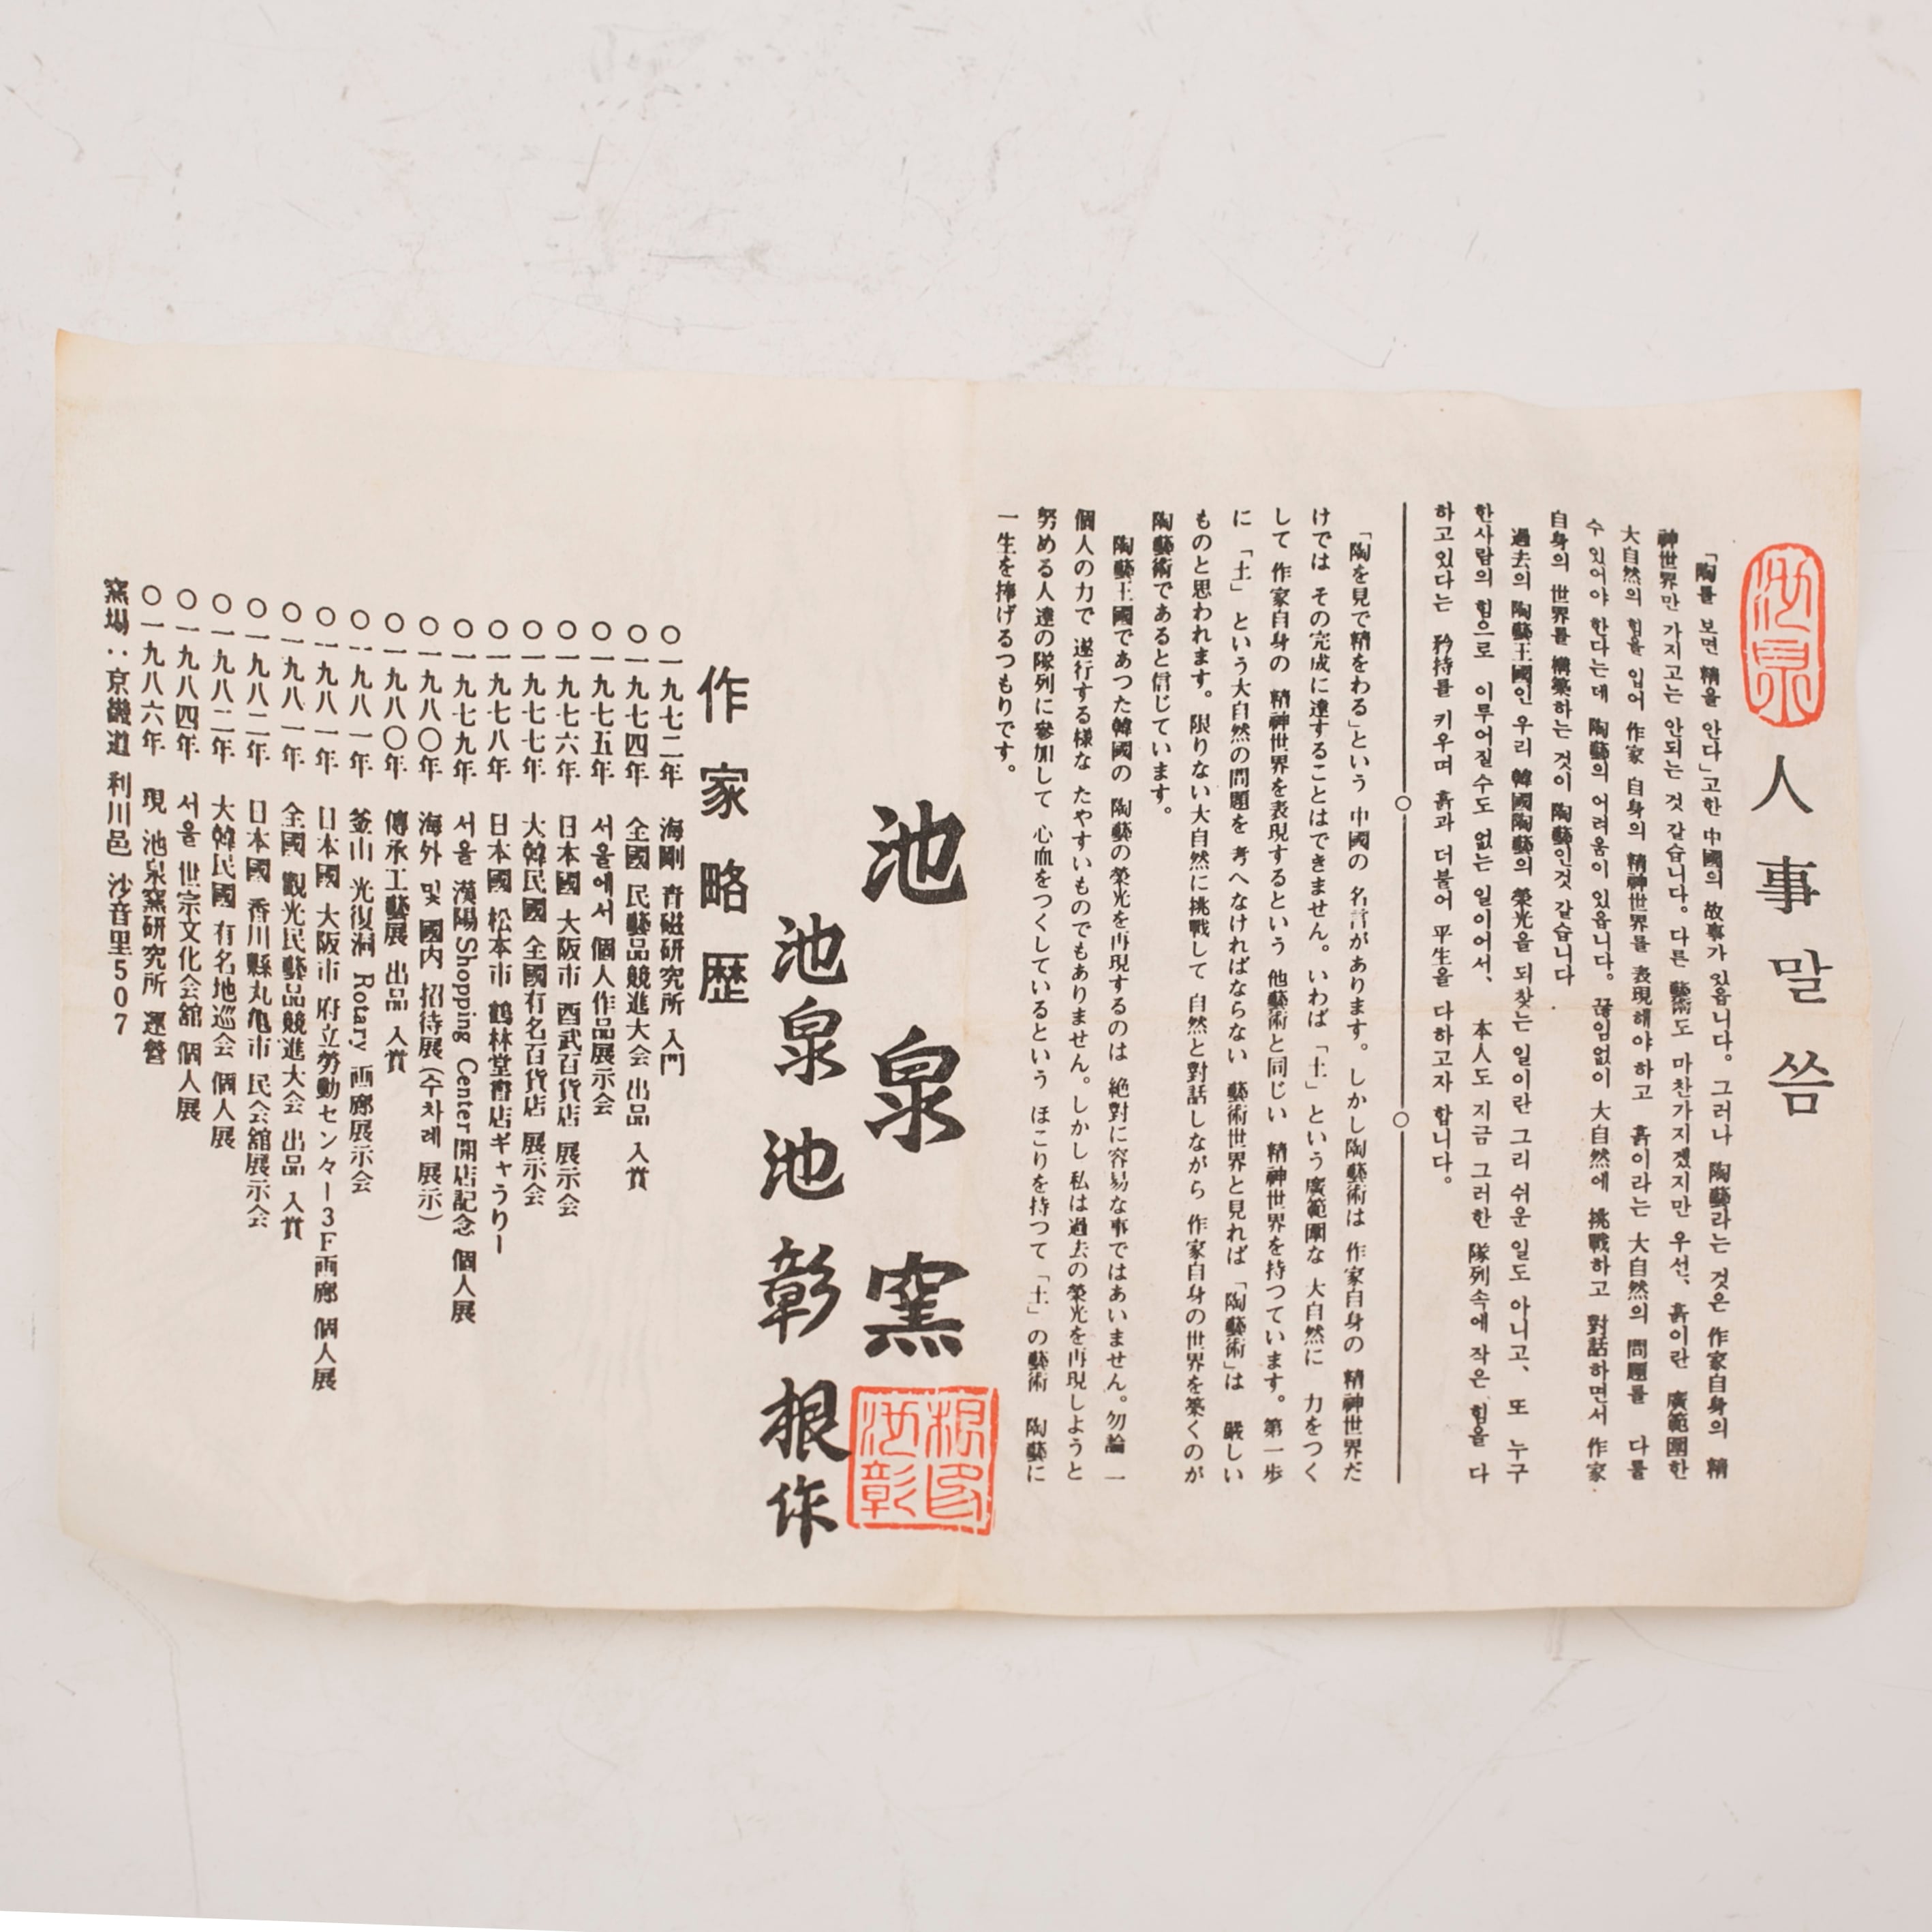 池泉
人事말씀
「陶를 보면 精을 안다」고한 中國의 故事가 있읍니다. 그러나 陶藝라는 것은 作家自身의 精
神世界만 가지고는 안되는 것 같습니다. 다른 藝術도 마찬가지겠지만 우선、흙이란 廣範圍한
大自然의 힘을 입어 作家 自身의 精神世界를 表現해야 하고 흙이라는 大自然의 問題를 다룰
수 있어야 한다는데 陶藝의 어려움이 있읍니다. 끊임없이 大自然에 挑戰하고 對話하면서 作家
自身의 世界를 構築하는 것이 陶藝인것 같습니다.
過去의 陶藝王國인 우리 韓國陶藝의 榮光을 되찾는 일이란 그리 쉬운 일도 아니고、또 누구
한사람의 힘으로 이루어질수도 없는 일이어서、本人도 지금 그러한 隊列속에 작은 힘을 다
하고있다는 矜持를 키우며 흙과 더불어 平生을 다하고자 합니다.
「陶を見で精をわる」という 中國の 名言があります。しかし陶藝術は 作家自身の 精神世界だ
けでは その完成に達することはできません。いわば「土」という廣範圍な 大自然に 力をつく
して 作家自身の 精神世界を表現するという 他藝術と同じい 精神世界を持つています。第一歩
に「土」という大自然の問題を 考へなければならない 藝術世界と見れば「陶藝術」は 嚴しい
ものと思われます。限りない大自然に挑戰して 自然と對話しながら 作家自身の世界を築くのが
陶藝術であると信じています。
陶藝王國であつた韓國の 陶藝の榮光を再現するのは 絶對に容易な事ではあいません。勿論 一
個人の力で 遂行する樣な たやすいものでもありません。しかし私は過去の榮光を再現しようと
努める人達の隊列に參加して 心血をつくしているという ほこりを持つて「土」の藝術 陶藝に
一生を捧げるつもりです。
池泉窯
池泉池彰根作
根印池彰
作家略歴
○一九七二年 海剛靑磁研究所 入門
○一九七四年 全國 民藝品競進大会 出品 入賞
○一九七五年 서울에서 個人作品展示会
○一九七六年 日本國 大阪市 酉武百貨店 展示会
○一九七七年 大韓民國 全國有名百貨店 展示会
○一九七八年 日本國 松本市 鶴林堂書店ギャうりー
○一九七九年 서울 漢陽 Shopping Center開店記念 個人展
○一九八〇年 海外 및 國内 招待展(수차례 展示)
○一九八〇年 傳承工藝展 出品 入賞
○一九八一年 釜山 光復洞 Rotary 画廊展示会
○一九八一年 日本國 大阪市 府立勞動センタ々ー3F画廊 個人展
○一九八一年 全國 觀光民藝品競進大会 出品 入賞
○一九八二年 日本國 香川縣丸亀市 民会舘展示会
○一九八二年 大韓民國 有名地巡会 個人展
○一九八四年 서울 世宗文化会舘 個人展
○一九八六年 現 池泉窯研究所 運營
窯場：京畿道 利川邑 沙音里507